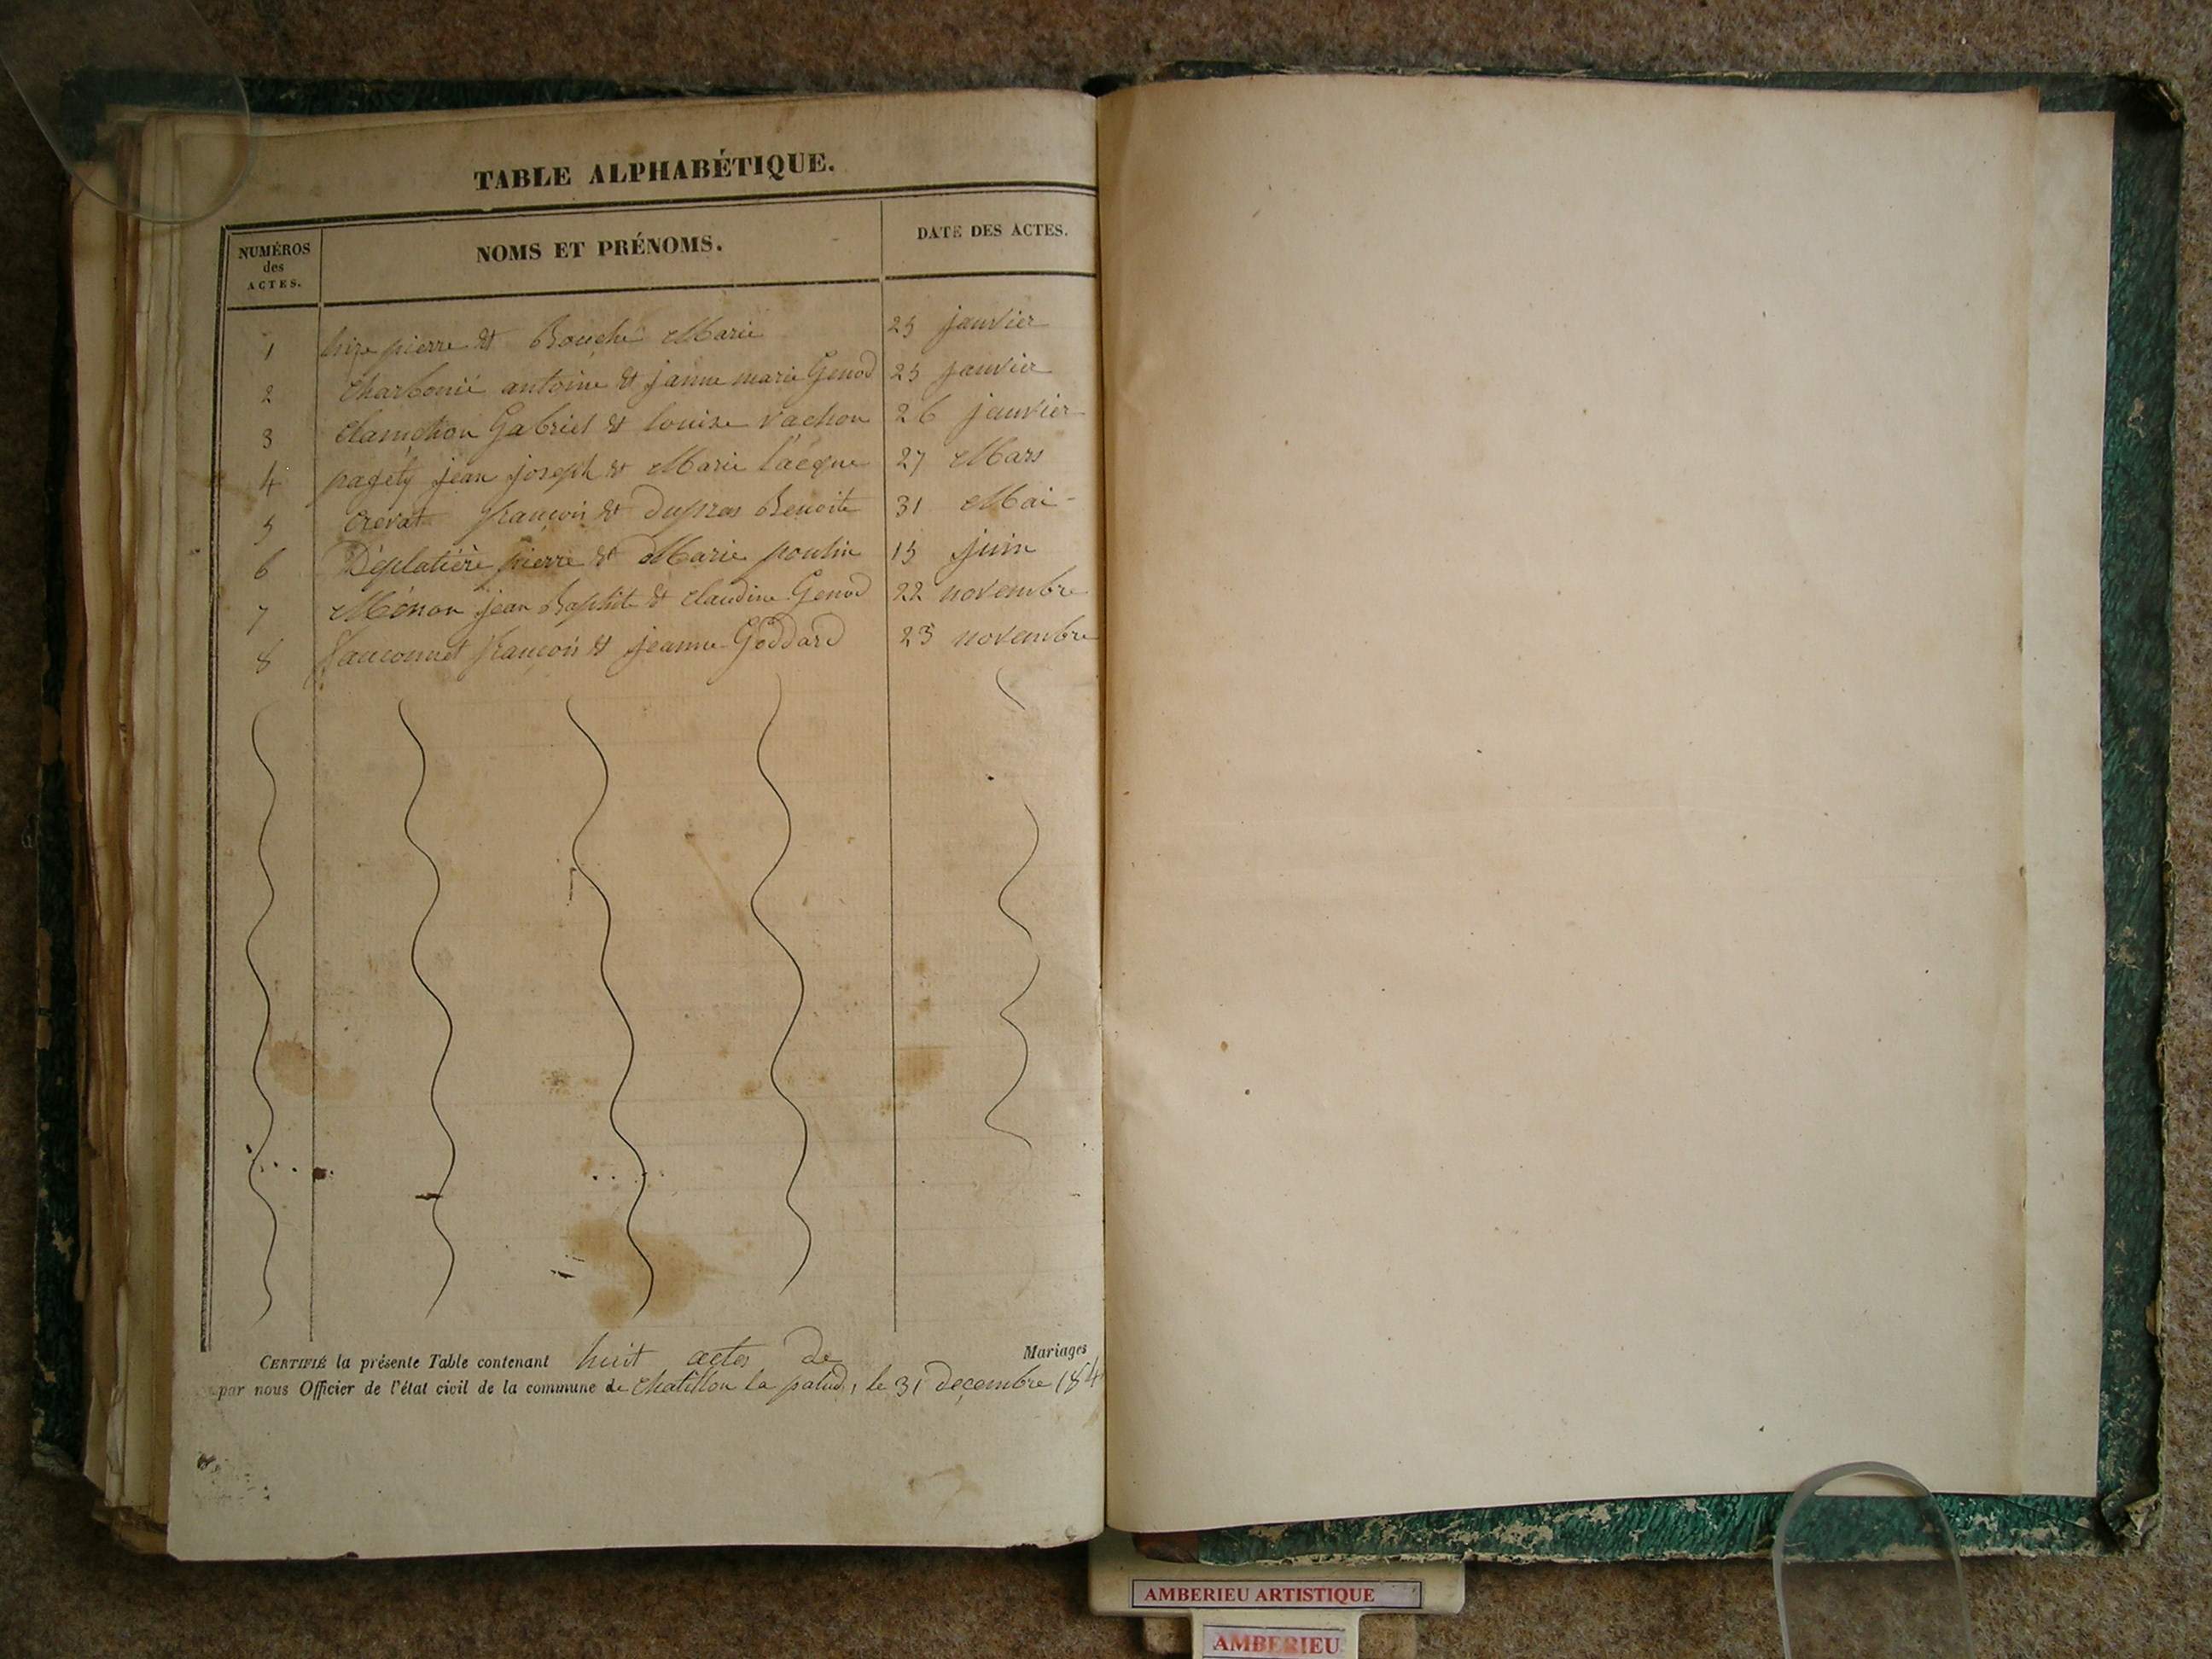 TABLE ALPHABÉTIQUE.
NUMÉROS des ACTES.
NOMS ET PRÉNOMS.
DATE DES ACTES.
1 pierre & Bouché Marie 25 janvier
2 Charbonié antoine & janne marie Genod 25 janvier
3 Gabriel & louise Vachon 26 janvier
4 jean joseph & Marie 27 Mars
5 Crevat françois & Dupras Benoite 31 Mai
6 Déplatière pierre & Marie poulin 15 juin
7 jean Baptiste & Claudine Genod 22 novembre
8 françois & jeanne Goddard 25 novembre
CERTIFIÉ la présente Table contenant huit actes de Mariages
par nous Officier de l'état civil de la commune de Chatillon la palud, le 31 decembre 184
AMBERIEU ARTISTIQUE
AMBERIEU